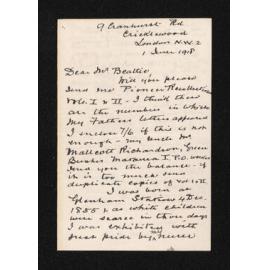 9 Cranhurst Rd
Cricklewood
London N.W.2
1 June 1918
Dear Mr Beattie,
Will you please
send me Pioneer Recollections
Vols. I & II - I think these
are the numbers in which
My Fathers letters appeared
I enclose 7/6 if this is not
enough - my uncle Mr
Mallcott Richardson, Green
Bushes Mataura I. P.O. would
send you the balance - if
it is too much send
duplicate copies of Vol I or II
I was born at
Glenham Station 4 Dec.
1885 & as white children
were scarce in those days
I was exhibited with
just pride by my nurse